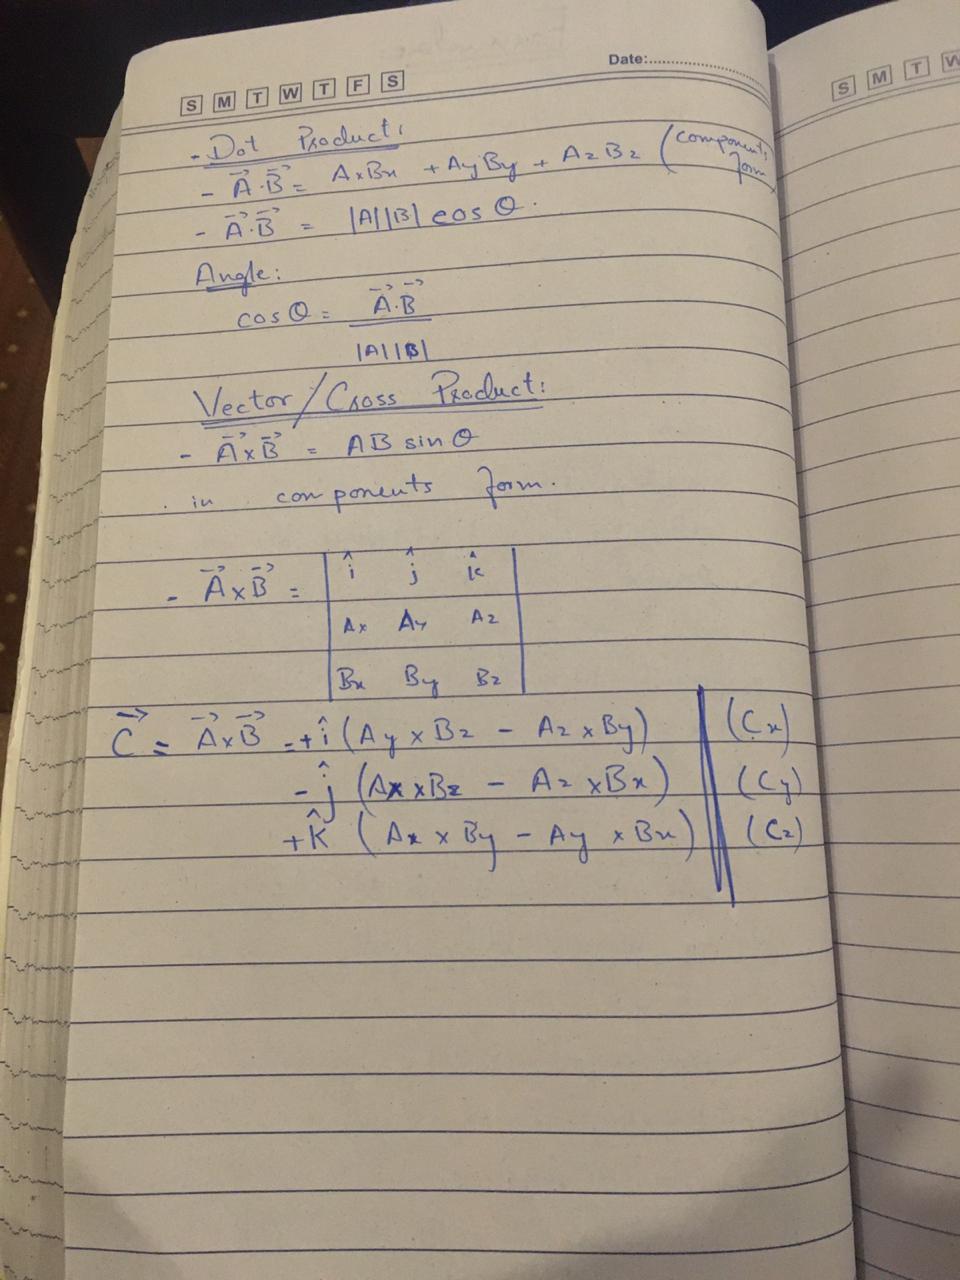 Date:
S M T W T F S
S M T W
- Dot Product:
- A⃗·B⃗ = AxBx + AyBy + AzBz (components form)
- A⃗·B⃗ = |A||B| cos θ.
Angle:
cos θ = A⃗·B⃗
|A||B|
Vector/Cross Product:
- A⃗×B⃗ = AB sin θ
in components form.
- A⃗×B⃗ = | î ĵ k̂ |
Ax Ay Az
Bx By Bz
C⃗ = A⃗×B⃗ = +î (Ay × Bz - Az × By) (Cx)
- ĵ (Ax × Bz - Az × Bx) (Cy)
+ k̂ (Ax × By - Ay × Bx) (Cz)